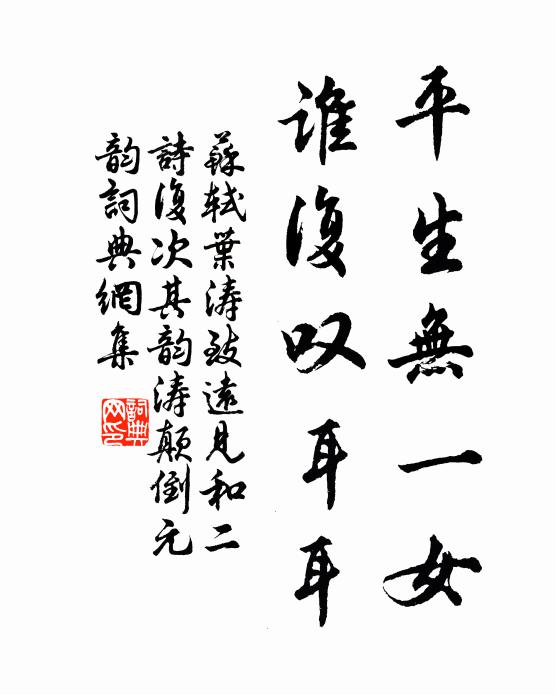 平生無一女
誰復叹耳耳
蘇軾葉涛致遠見和二
詩復次其韵涛颠倒元
韵詞典網集
詞典
网印